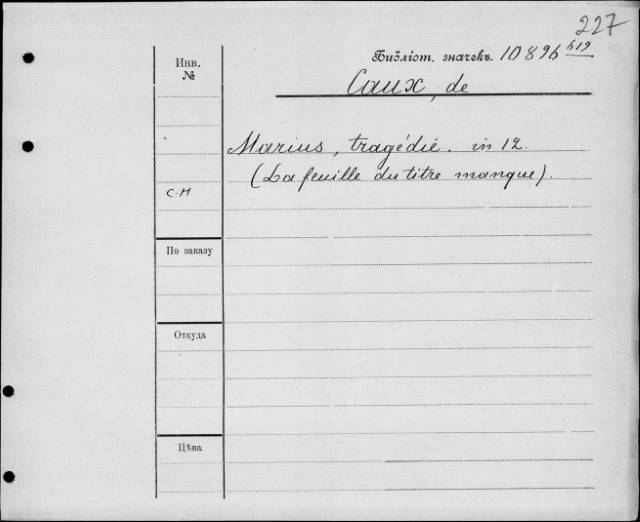 227
Инв. №
Библіот. значекъ. 10896 619
Caux, de
Marius, tragédie. in 12.
(La feuille du titre manque).
С-Н
По заказу
Откуда
Цѣна